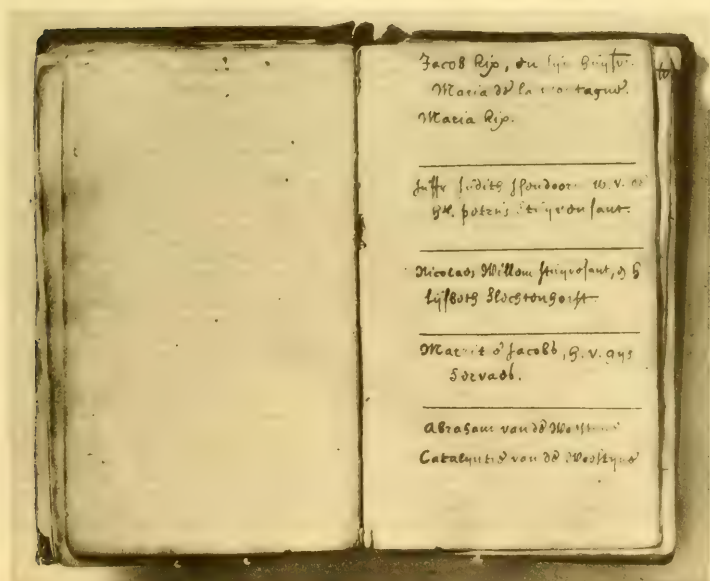 Jacob Kip, en syn huysvr.
Maria de la Montagne.
Maria Kip.
Juffr Judith Isendoorn w. v.
Hr. petrus Stuyvesant.
Nicolaes Willem Stuyvesant, e h
Lysbeth Slechtenhorst
Marrit e Jacobs, h. v. gys
Servaes.
Abraham van de Woestyne
Catalyntie van de Woestyne